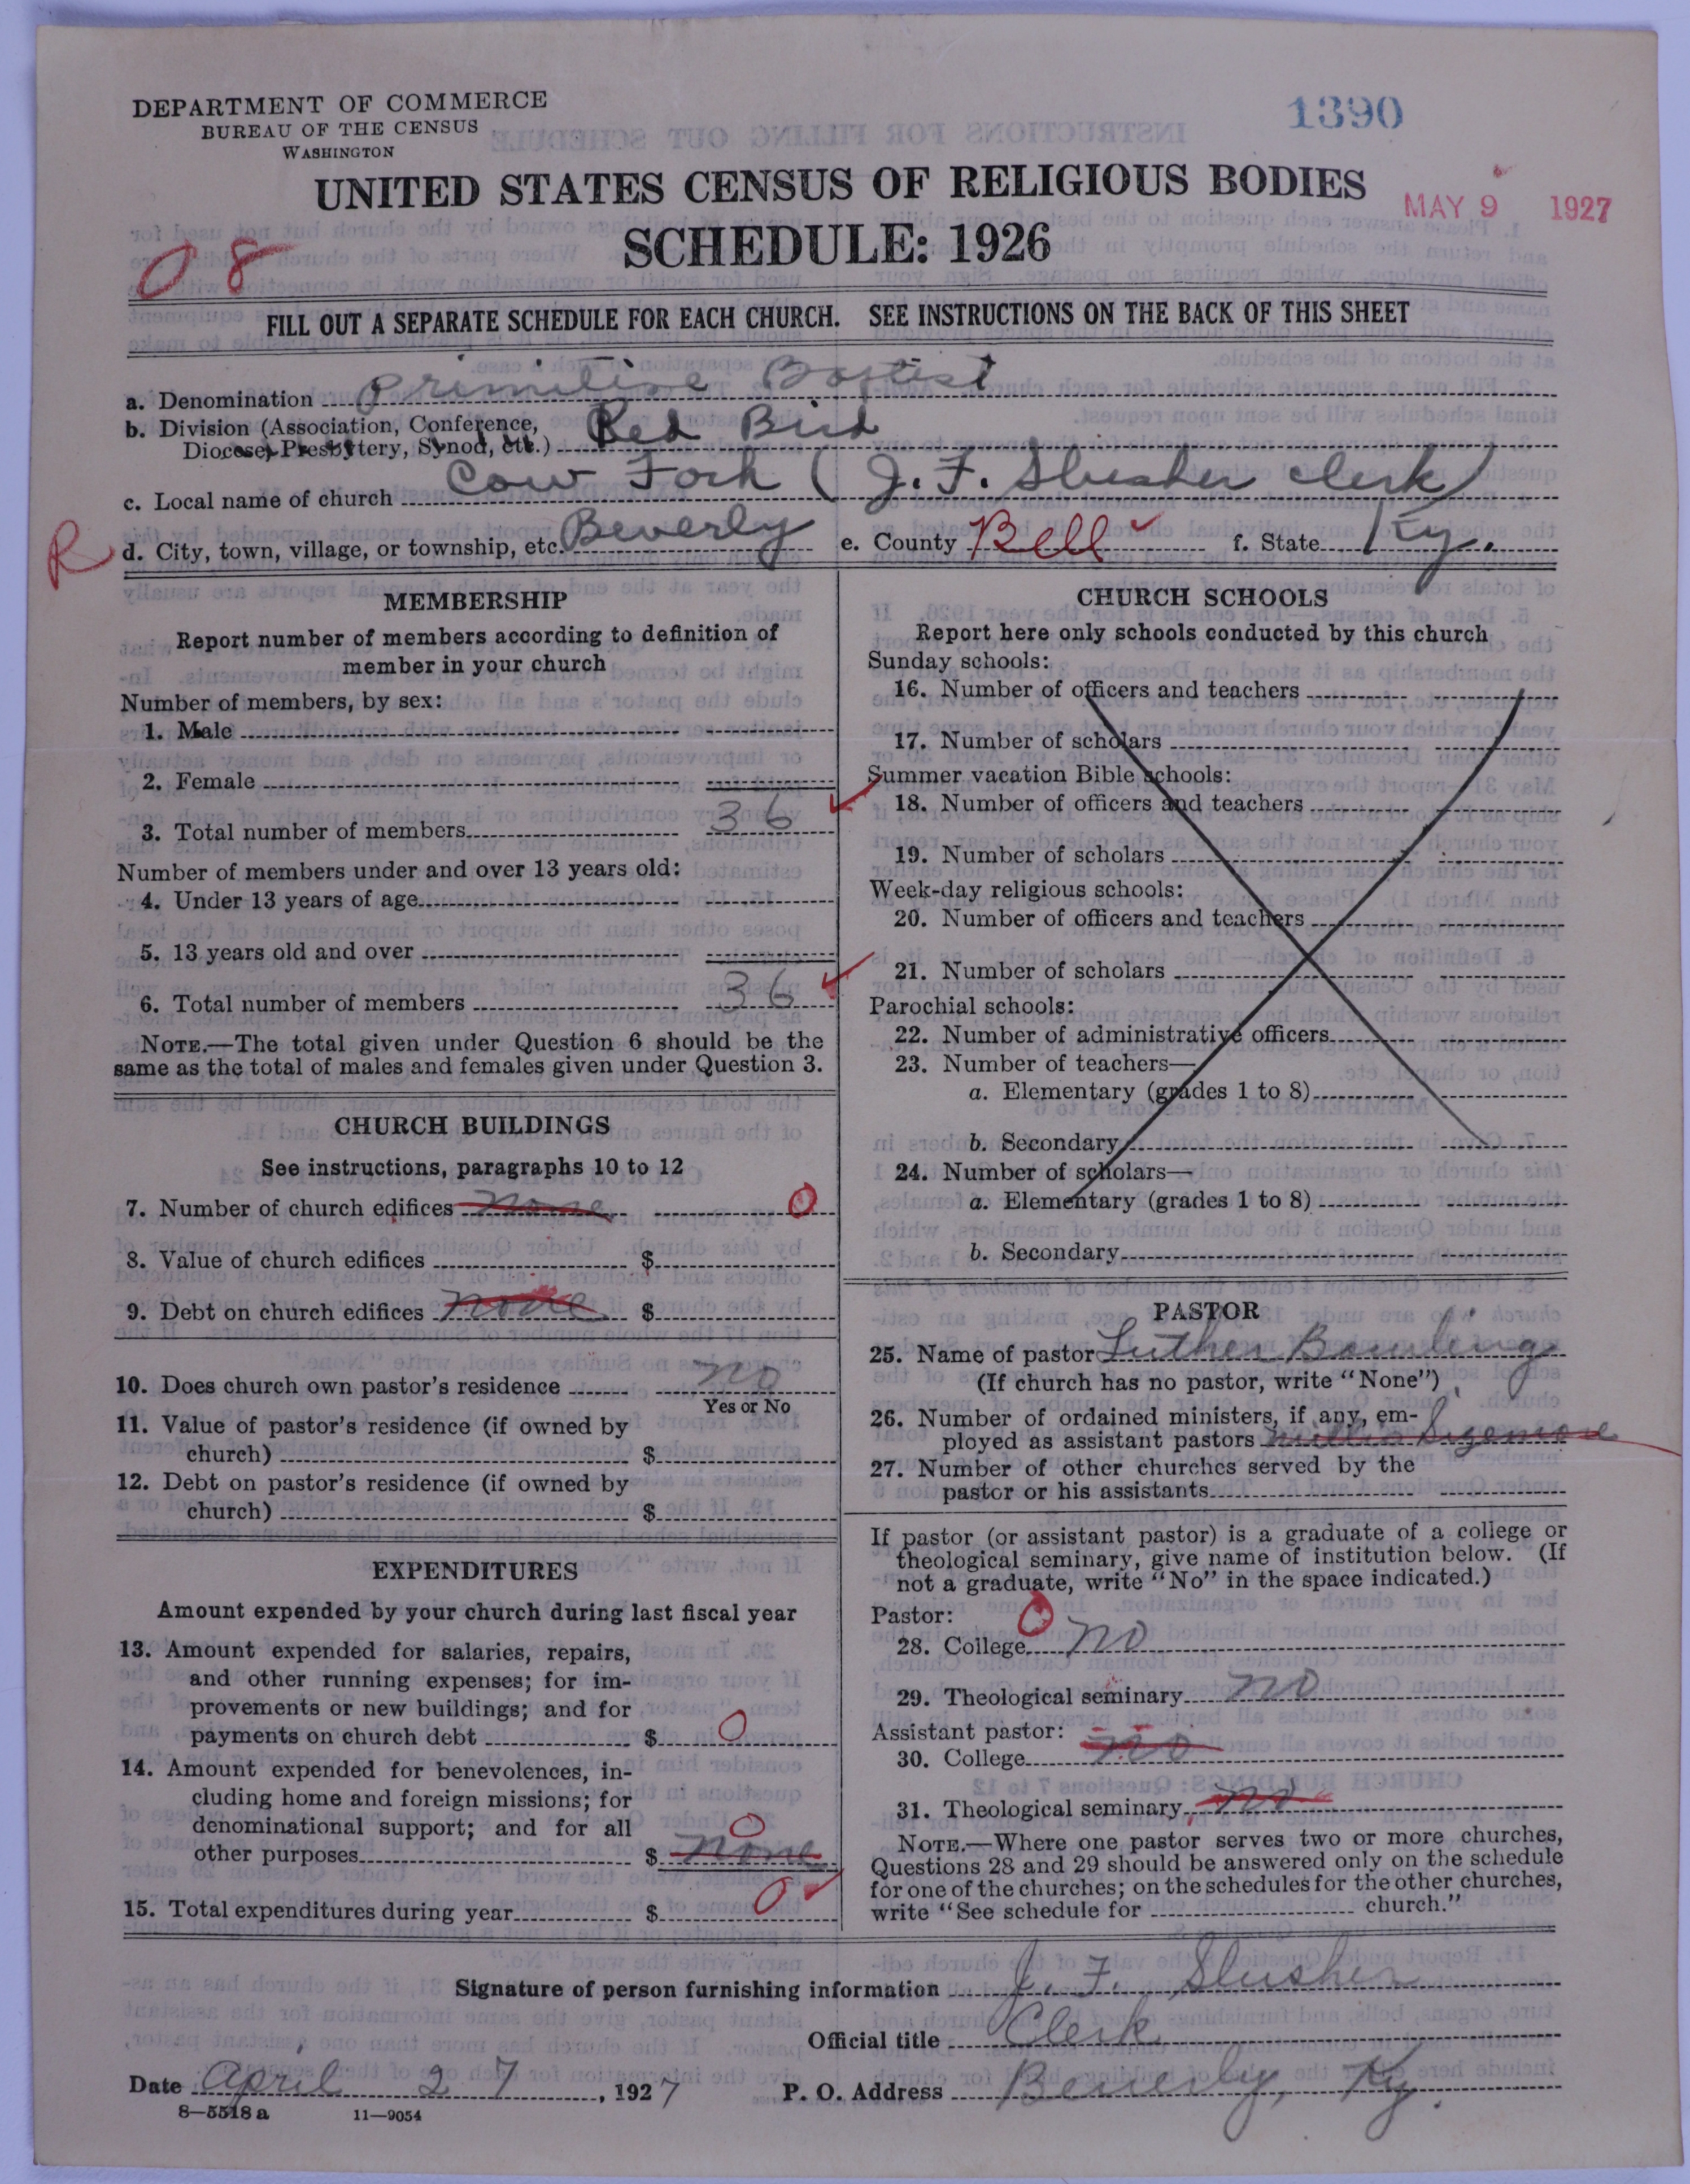 DEPARTMENT OF COMMERCE
BUREAU OF THE CENSUS
WASHINGTON
1390
UNITED STATES CENSUS OF RELIGIOUS BODIES
MAY 9 1927
SCHEDULE: 1926
08
FILL OUT A SEPARATE SCHEDULE FOR EACH CHURCH. SEE INSTRUCTIONS ON THE BACK OF THIS SHEET
a. Denomination Primitive Baptist
b. Division (Association, Conference, Diocese, Presbytery, Synod, etc.) Red Bird
c. Local name of church Cow Fork (J. F. Slusher clerk)
R
d. City, town, village, or township, etc. Beverly e. County Bell f. State Ky.
MEMBERSHIP
Report number of members according to definition of
member in your church
Number of members, by sex:
1. Male
2. Female
3. Total number of members 36
Number of members under and over 13 years old:
4. Under 13 years of age
5. 13 years old and over
6. Total number of members 36
NOTE.—The total given under Question 6 should be the
same as the total of males and females given under Question 3.
CHURCH BUILDINGS
See instructions, paragraphs 10 to 12
7. Number of church edifices none 0
8. Value of church edifices $
9. Debt on church edifices none $
10. Does church own pastor's residence no
Yes or No
11. Value of pastor's residence (if owned by
church) $
12. Debt on pastor's residence (if owned by
church) $
EXPENDITURES
Amount expended by your church during last fiscal year
13. Amount expended for salaries, repairs,
and other running expenses; for im-
provements or new buildings; and for
payments on church debt $ 0
14. Amount expended for benevolences, in-
cluding home and foreign missions; for
denominational support; and for all 0
other purposes $ none
15. Total expenditures during year $ 0
CHURCH SCHOOLS
Report here only schools conducted by this church
Sunday schools:
16. Number of officers and teachers
17. Number of scholars
Summer vacation Bible schools:
18. Number of officers and teachers
19. Number of scholars
Week-day religious schools:
20. Number of officers and teachers
21. Number of scholars
Parochial schools:
22. Number of administrative officers
23. Number of teachers—
a. Elementary (grades 1 to 8)
b. Secondary
24. Number of scholars—
a. Elementary (grades 1 to 8)
b. Secondary
PASTOR
25. Name of pastor Luther Bowling
(If church has no pastor, write "None")
26. Number of ordained ministers, if any, em- 1
ployed as assistant pastors
27. Number of other churches served by the
pastor or his assistants
If pastor (or assistant pastor) is a graduate of a college or
theological seminary, give name of institution below. (If
not a graduate, write "No" in the space indicated.)
Pastor: 0
28. College no
29. Theological seminary no
Assistant pastor:
30. College no
31. Theological seminary no
NOTE.—Where one pastor serves two or more churches,
Questions 28 and 29 should be answered only on the schedule
for one of the churches; on the schedules for the other churches,
write "See schedule for church."
Signature of person furnishing information J. F. Slusher
Official title Clerk
Date April 27, 1927 P. O. Address Beverly, Ky.
8—5518 a 11—9054